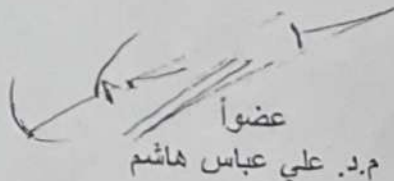 عضواً
م.د. علي عباس هاشم